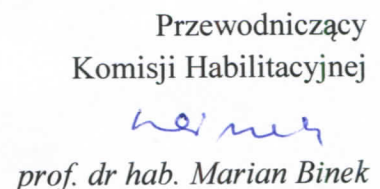 Przewodniczący
Komisji Habilitacyjnej
prof. dr hab. Marian Binek